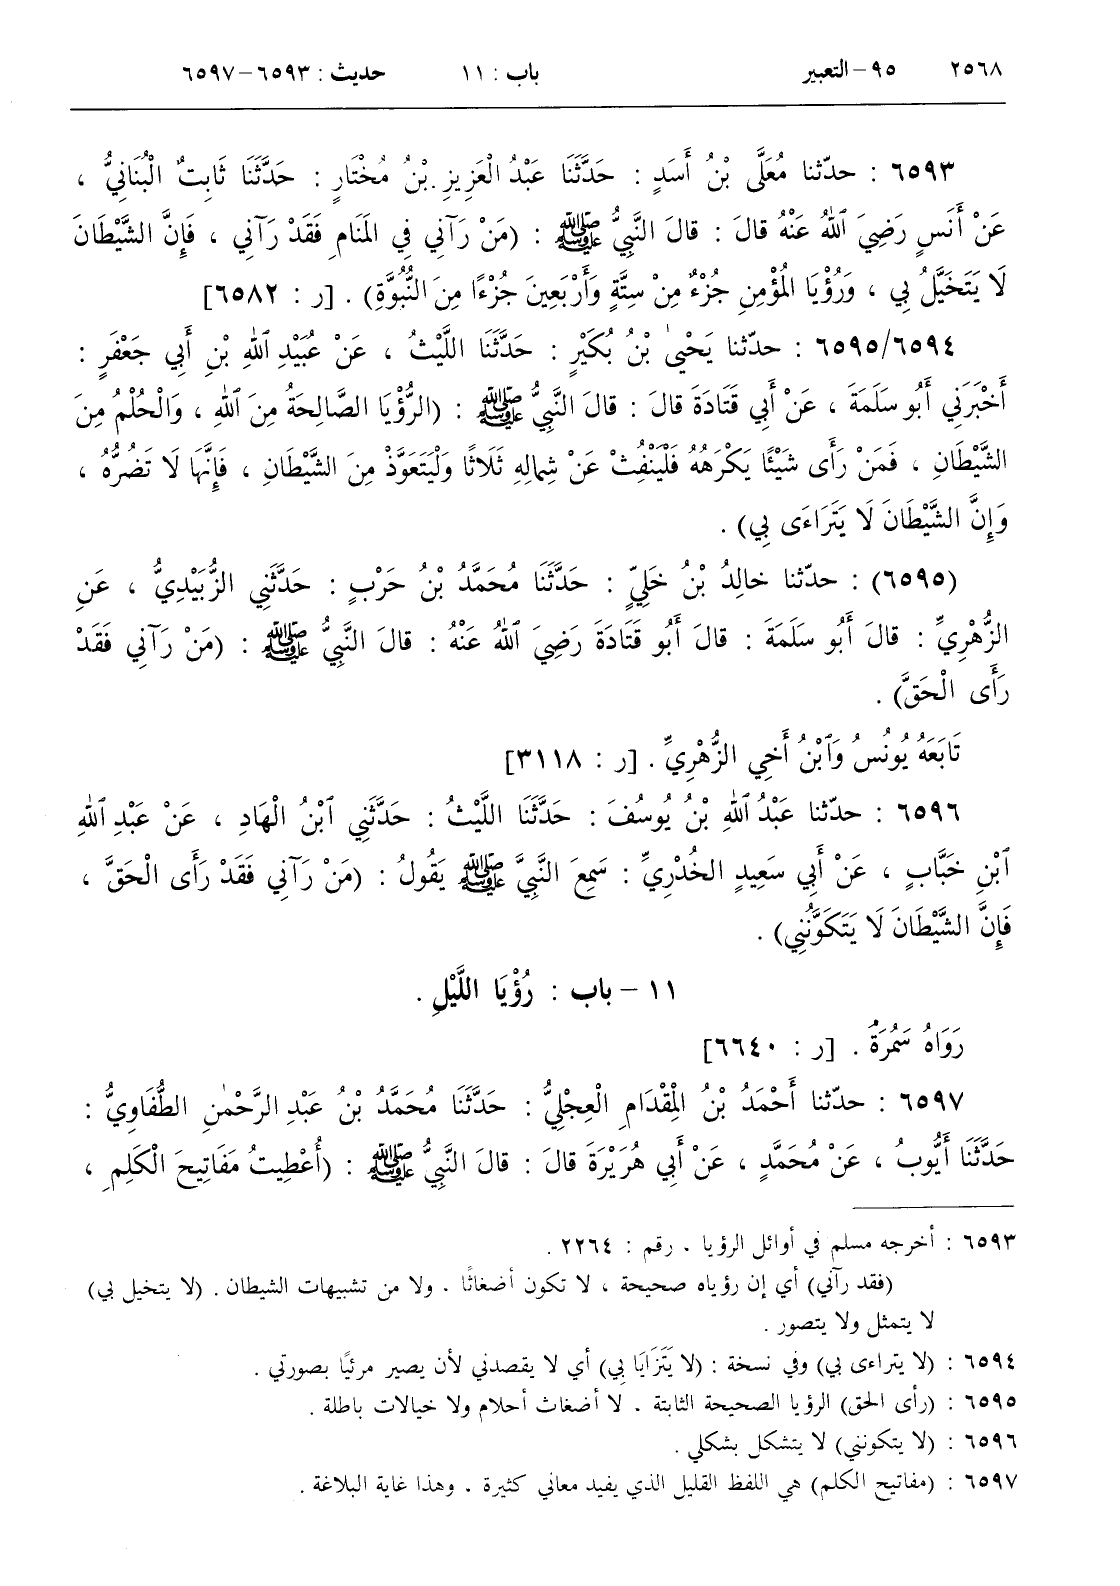 ٢٥٦٨ ٩٥ – التعبير باب : ١١ حديث : ٦٥٩٣ – ٦٥٩٧
٦٥٩٣ : حدّثنا مُعَلَّى بْنُ أَسَدٍ : حَدَّثَنَا عَبْدُ الْعَزِيزِ بْنُ مُخْتَارٍ : حَدَّثَنَا ثَابِتٌ الْبُنَانِيُّ ،
عَنْ أَنَسٍ رَضِيَ ٱللهُ عَنْهُ قالَ : قالَ النَّبِيُّ ﷺ : (مَنْ رَآنِي فِي المَنَامِ فَقَدْ رَآنِي ، فَإِنَّ الشَّيْطَانَ
لَا يَتَخَيَّلُ بِي ، وَرُؤْيَا المُؤْمِنِ جُزْءٌ مِنْ سِتَّةٍ وَأَرْبَعِينَ جُزْءًا مِنَ النُّبُوَّةِ) . [ر : ٦٥٨٢]
٦٥٩٥/٦٥٩٤ : حدّثنا يَحْيىٰ بْنُ بُكَيْرٍ : حَدَّثَنَا اللَّيْثُ ، عَنْ عُبَيْدِ ٱللهِ بْنِ أَبِي جَعْفَرٍ :
أَخْبَرَنِي أَبُو سَلَمَةَ ، عَنْ أَبِي قَتَادَةَ قالَ : قالَ النَّبِيُّ ﷺ : (الرُّؤْيَا الصَّالِحَةُ مِنَ ٱللهِ ، وَالْحُلْمُ مِنَ
الشَّيْطَانِ ، فَمَنْ رَأَى شَيْئًا يَكْرَهُهُ فَلْيَنْفِثْ عَنْ شِمالِهِ ثَلَاثًا وَلْيَتَعَوَّذْ مِنَ الشَّيْطَانِ ، فَإِنَّهَا لَا تَضُرُّهُ ،
وَإِنَّ الشَّيْطَانَ لَا يَتَرَاءَى بِي) .
(٦٥٩٥) : حدّثنا خالِدُ بْنُ خَلِيٍّ : حَدَّثَنَا مُحَمَّدُ بْنُ حَرْبٍ : حَدَّثَنِي الزُّبَيْدِيُّ ، عَنِ
الزُّهْرِيِّ : قالَ أَبُو سَلَمَةَ : قالَ أَبُو قَتَادَةَ رَضِيَ ٱللهُ عَنْهُ : قالَ النَّبِيُّ ﷺ : (مَنْ رَآنِي فَقَدْ
رَأَى الْحَقَّ) .
تَابَعَهُ يُونُسُ وَٱبْنُ أَخِي الزُّهْرِيِّ . [ر : ٣١١٨]
٦٥٩٦ : حدّثنا عَبْدُ ٱللهِ بْنُ يُوسُفَ : حَدَّثَنَا اللَّيْثُ : حَدَّثَنِي ٱبْنُ الْهَادِ ، عَنْ عَبْدِ ٱللهِ
ٱبْنِ خَبَّابٍ ، عَنْ أَبِي سَعِيدٍ الخُدْرِيِّ : سَمِعَ النَّبِيَّ ﷺ يَقُولُ : (مَنْ رَآنِي فَقَدْ رَأَى الْحَقَّ ،
فَإِنَّ الشَّيْطَانَ لَا يَتَكَوَّنُنِي) .
١١ – باب : رُؤْيَا اللَّيْلِ .
رَوَاهُ سَمُرَةُ . [ر : ٦٦٤٠]
٦٥٩٧ : حدّثنا أَحْمَدُ بْنُ الْمِقْدَامِ الْعِجْلِيُّ : حَدَّثَنَا مُحَمَّدُ بْنُ عَبْدِ الرَّحْمٰنِ الطُّفَاوِيُّ :
حَدَّثَنَا أَيُّوبُ ، عَنْ مُحَمَّدٍ ، عَنْ أَبِي هُرَيْرَةَ قالَ : قالَ النَّبِيُّ ﷺ : (أُعْطِيتُ مَفَاتِيحَ الْكَلِمِ ،
٦٥٩٣ : أخرجه مسلم في أوائل الرؤيا . رقم : ٢٢٦٤ .
(فقد رآني) أي إن رؤياه صحيحة ، لا تكون أضغاثًا . ولا من تشبيهات الشيطان . (لا يتخيل بي)
لا يتمثل ولا يتصور .
٦٥٩٤ : (لا يتراءى بي) وفي نسخة : (لا يَتَزَايَا بِي) أي لا يقصدني لأن يصير مرئيًا بصورتي .
٦٥٩٥ : (رأى الحق) الرؤيا الصحيحة الثابتة . لا أضغاث أحلام ولا خيالات باطلة .
٦٥٩٦ : (لا يتكونني) لا يتشكل بشكلي .
٦٥٩٧ : (مفاتيح الكلم) هي اللفظ القليل الذي يفيد معاني كثيرة . وهذا غاية البلاغة .